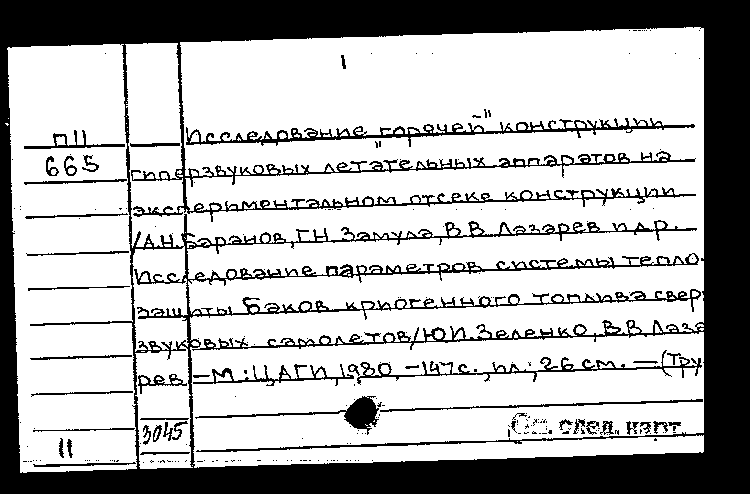 I
П11 Исследование "горячей" конструкции
665 гиперзвуковых летательных аппаратов на
экспериментальном отсеке конструкции
/А.Н. Баранов, Г.Н. Замула, В.В. Лазарев и др.
Исследование параметров системы тепло-
защиты баков криогенного топлива сверх
звуковых самолетов/Ю.И. Зеленко, В.В. Лаза
рев -М.: ЦАГИ, 1980, -147с., ил.; 26 см. -(Тру
3045
11 См. след. карт.